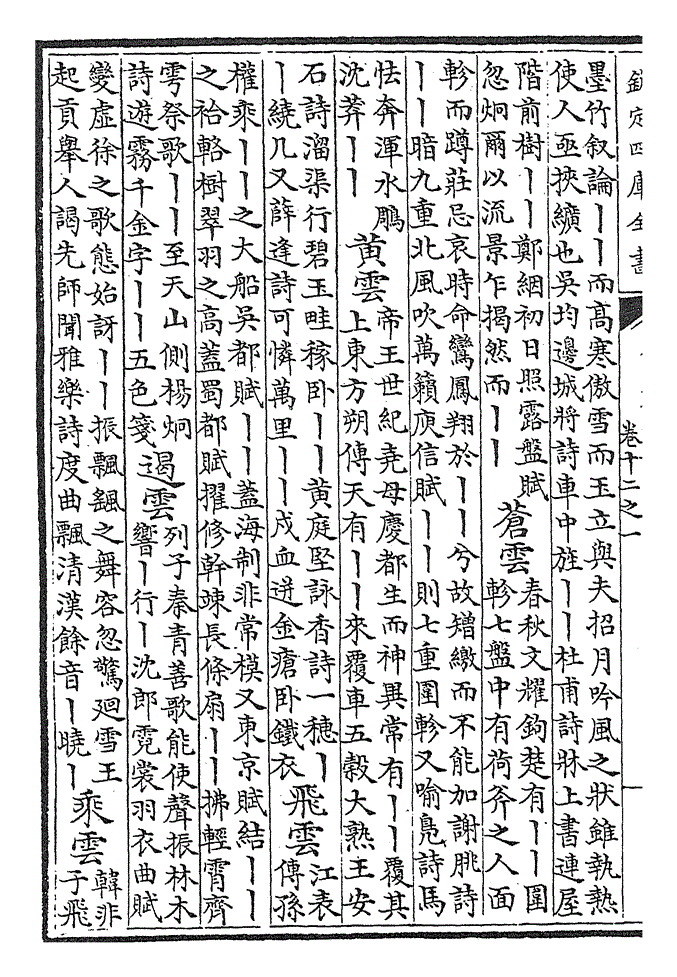 欽定四庫全書
卷十二之一
墨竹叙論丨丨而髙寒傲雪而玉立與夫招月吟風之狀雖執熱
使人亟挾纊也吳均邊城將詩車中旌丨丨杜甫詩牀上書連屋
階前樹丨丨鄭絪初日照露盤賦
忽炯爾以流景乍揭然而丨丨
蒼雲
春秋文耀鉤楚有丨丨圍
軫七盤中有荷斧之人面
軫而蹲莊忌哀時命鸞鳳翔於丨丨兮故矰繳而不能加謝朓詩
丨丨暗九重北風吹萬籟庾信賦丨丨則七重圍軫又喻鳬詩馬
怯奔渾水鵰
沈莽丨丨
黄雲
帝王世紀堯母慶都生而神異常有丨丨覆其
上東方朔傳天有丨丨來覆車五榖大熟王安
石詩溜渠行碧玉畦稼卧丨丨黄庭堅詠香詩一穗丨
丨繞几又薛逢詩可憐萬里丨丨戍血迸金瘡卧鐵衣
飛雲
江表
傳孫
權乘丨丨之大船吳都賦丨丨蓋海制非常模又東京賦結丨丨
之袷輅樹翠羽之高蓋蜀都賦擢修幹竦長條扇丨丨拂輕霄齊
雩祭歌丨丨至天山側楊炯
詩遊霧千金字丨丨五色箋
遏雲
列子秦青善歌能使聲振林木
響丨行丨沈郎霓裳羽衣曲賦
變虛徐之歌態始訝丨丨振飄颻之舞容忽驚廻雪王
起貢舉人謁先師聞雅樂詩度曲飄清漢餘音丨曉丨
乘雲
韓非
子飛